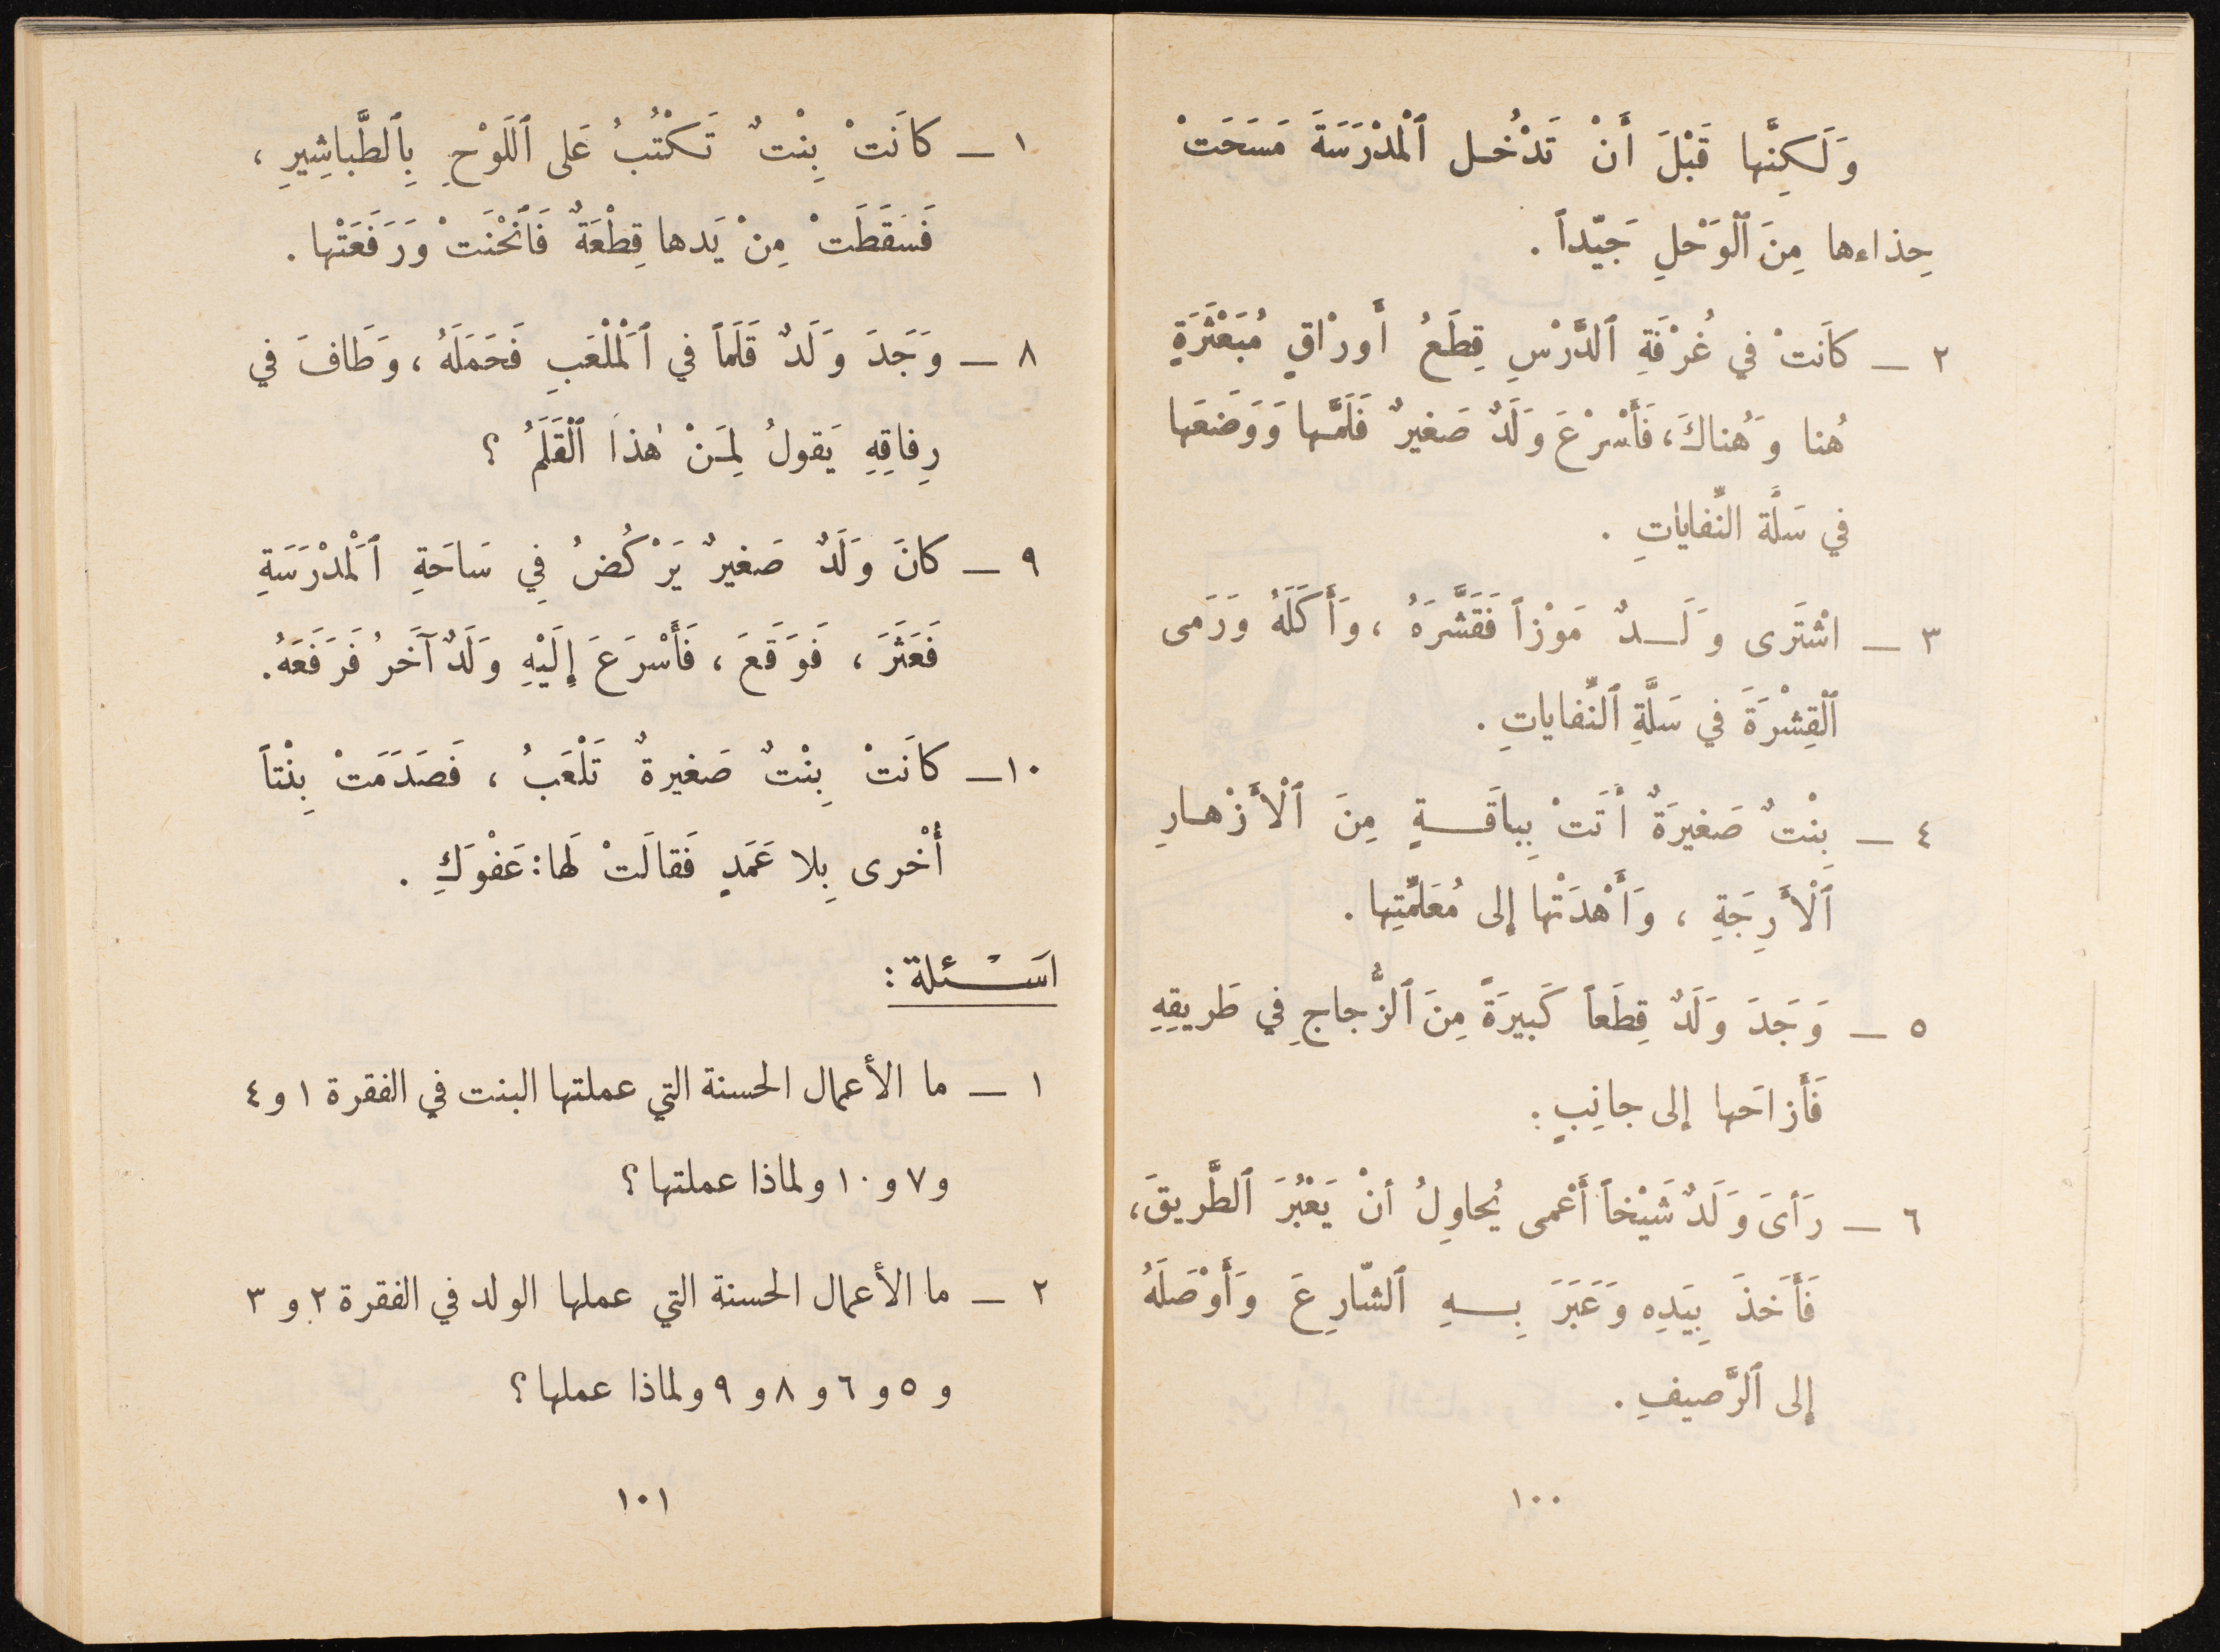 وَلَكِنَّها قَبْلَ أَنْ تَدْخُل ٱلْمَدْرَسَةَ مَسَحَتْ
حِذاءها مِنَ ٱلْوَحْلِ جَيّداً .
٢ – كاَنَتْ في غُرْفَةِ ٱلدَّرْسِ قِطَعُ أَورْاقٍ مُبَعْثَرَةٍ
هُنا وَهُناكَ، فَأَسْرْعَ وَلَدٌ صَغيرٌ فَلَمَّها وَوَضَعَها
في سَلَّة النِّفاياتِ .
٣ – اشْتَرى وَلَدٌ مَوْزاً فَقَشَّرَهُ ، وَأَكَلَهُ وَرَمى
ٱلْقِشْرَةَ في سَلَّةِ ٱلنِّفاياتِ .
٤ – بِنْتٌ صَغيرَةٌ أَتَتْ بِباَقَةٍ مِنَ ٱلْأَزْهارِ
ٱلْأَرِجَةِ ، وَأَهْدَتْها إلى مُعَلِّمَتِها .
٥ – وَجَدَ وَلَدٌ قِطَعاً كَبيرَةً مِنَ ٱلزُّجاجِ فِي طَريقِهِ
فَأَزاحَها إلى جانِبٍ :
٦ – رَأىَ وَلَدٌ شَيْخاً أَعْمى يُحاوِلُ أَنْ يَعْبُرَ ٱلطَّريقَ،
فَأَخَذَ بِيَدِه وَعَبَرَ بِهِ ٱلشّارِعَ وَأَوْصَلَهُ
إلى ٱلرَّصيفِ .
١٠٠
١ – كاَنَتْ بِنْتٌ تَكْتُبُ عَلى ٱللَوْحِ بِٱلطَّباشِيرِ ،
فَسَقَطَتْ مِنْ يَدها قِطْعَةٌ فَٱنْحْنَتْ وَرَفَعَتْها .
٨ – وَجَدَ وَلَدٌ قَلَماً في ٱلْمَلْعَبِ فَحَمَلَهُ ، وَطَافَ في
رِفاقِهِ يَقولُ لِمَنْ هٰذا ٱلْقَلَمُ ؟
٩ – كانَ وَلَدٌ صَغيرٌ يَرْكُضُ فِي سَاحَةِ ٱلْمَدْرَسَةِ
فَعَثَرَ ، فَوَقَعَ ، فَأَسْرَعَ إِلَيْهِ وَلَدٌ آخَرُ فَرَفَعَهُ.
١٠ – كاَنَتْ بِنْتٌ صَغيرةٌ تَلْعَبُ ، فَصَدَمَتْ بِنْتاً
أُخْرى بِلا عَمَدٍ فَقالَتْ لَها: عَفْوَكِ .
اسْئلة :
١ – ما الأعمال الحسنة التي عملتها البنت في الفقرة ١ و ٤
و ٧ و ١٠ ولماذا عملتها ؟
٢ – ما الأعمال الحسنة التي عملها الولد في الفقرة ٢ و ٣
و ٥ و ٦ و ٨ و ٩ ولماذا عملها ؟
١٠١